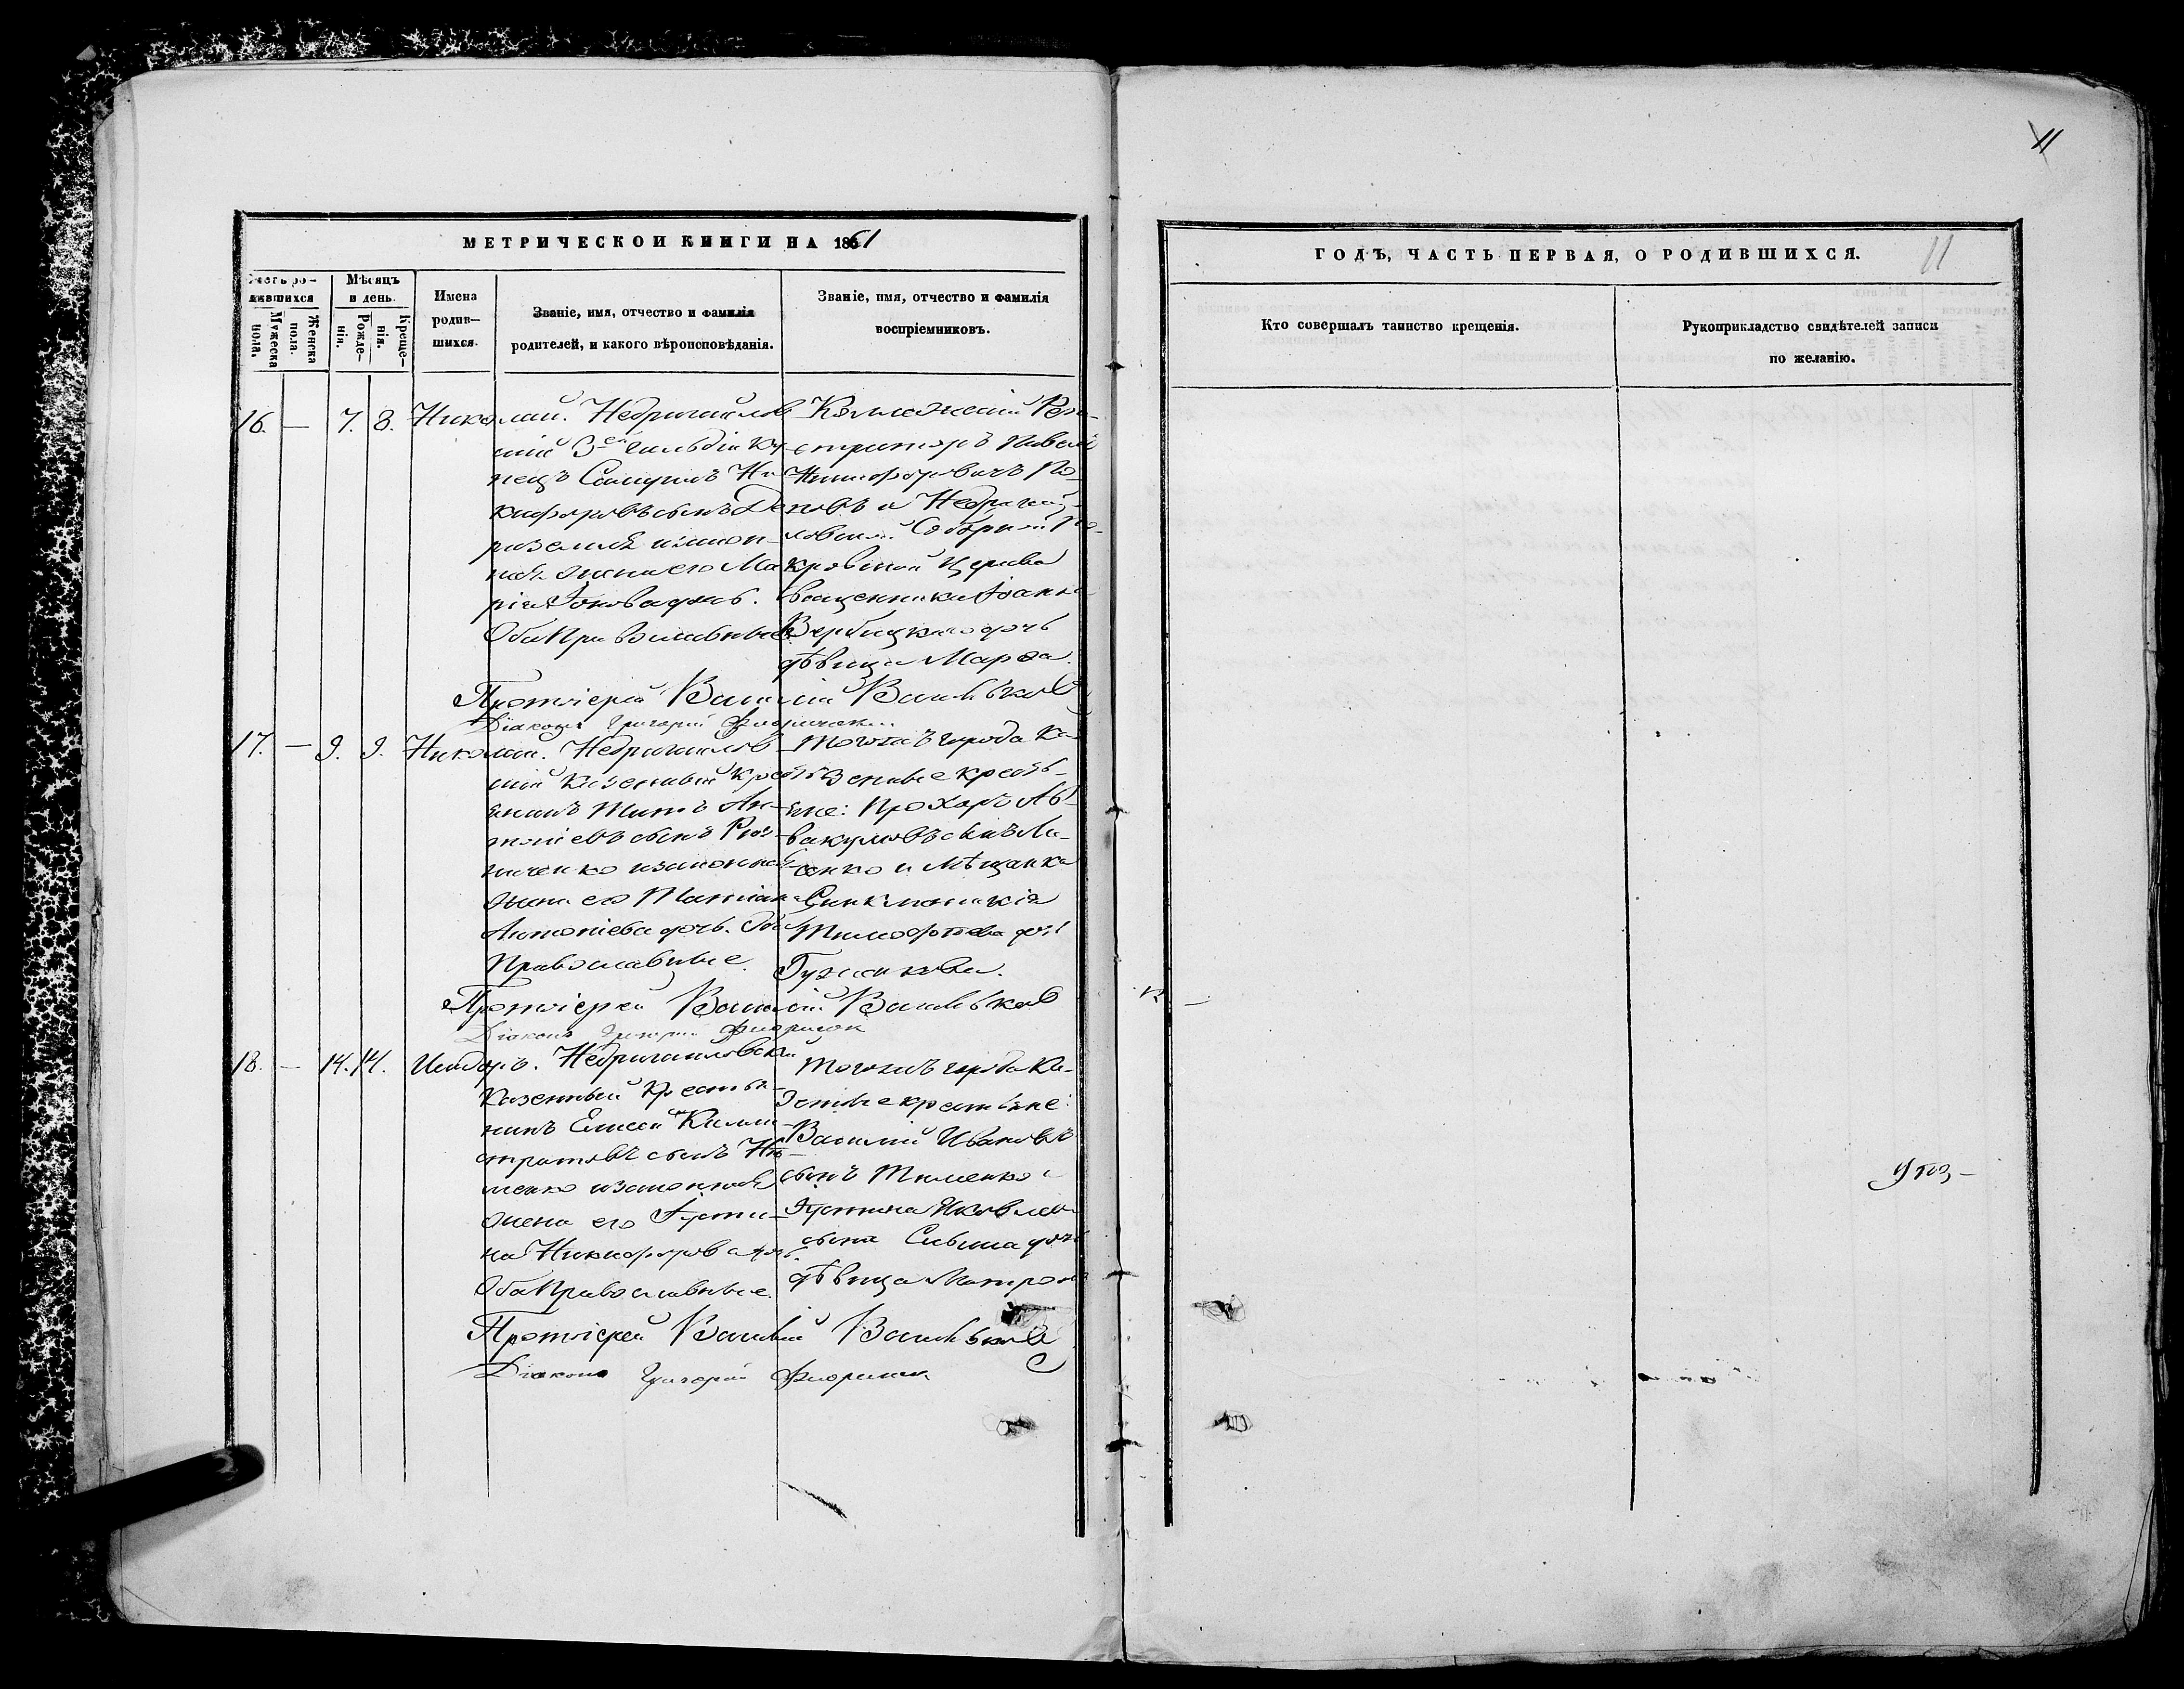 11
МЕТРИЧЕСКОЙ КНИГИ НА 1861
ГОДЪ, ЧАСТЬ ПЕРВАЯ, О РОДИВШИХСЯ.
11
Счетъ ро-
дившихся
Мужеска
пола.
Женска
пола.
Мѣсяцъ
и день.
Рожде-
нія.
Креще-
нія.
Имена
родив-
шихся.
Званіе, имя, отчество и фамилія
родителей, и какого вѣроисповѣданія.
Званіе, имя, отчество и фамилія
воспріемниковъ.
Кто совершалъ таинство крещенія.
Рукоприкладство свидѣтелей записи
по желанію.
16. — 7. 8. Николай.
Недригайлов-
скій 3ей гильдіи ку-
пецъ Самуилъ Ни-
кифоровъ сынъ
и закон-
ная жена его Ма-
рія дочь.
Оба Православные.
Коллежскій Реги-
страторъ Павелъ
Никифоровичъ По-
повъ и Недригай-
ловской Соборной По-
кровской Церкви
Священника Іоанна
Вербицкаго дочь
дѣвица Марѳа.
Протоіерей Василій Васильковъ
Діаконъ Григорій
17. — 9. 9. Николай.
Недригайлов-
скій Казенный Кресть-
янинъ Титъ Ан-
тоніевъ сынъ
и законная
жена его Татіана
Антоніева дочь. Оба
Православные.
Тогожъ города Ка-
зенные кресть-
яне: Прохоръ Ав-
вакумовъ сынъ
и мѣщанка
Синклитикія
Тимофеева дочь
Протоіерей Василій Васильковъ
Діаконъ Григорій
18. — 14. 14. Исидоръ.
Недригайловскій
Казенный Крестья-
нинъ Елисей Калли-
стратовъ сынъ
и законная
жена его Іусти-
на Никифорова дочь.
Оба Православные.
Тогожъ города Ка-
зенные крестьяне:
Василій Ивановъ
сынъ Тименко и
Яковлева
сына дочь
дѣвица Матрона
Протоіерей Василій Васильковъ
Діаконъ Григорій